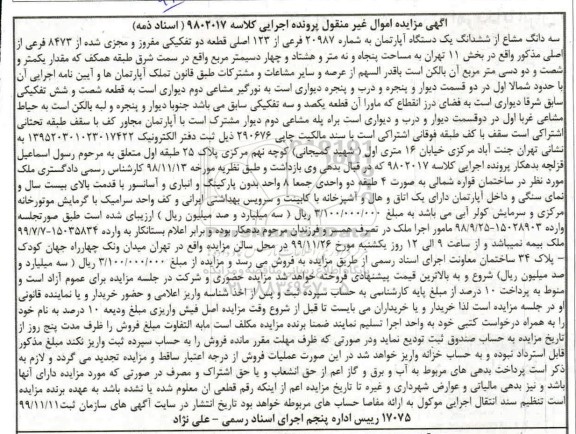 آگهی مزایده اموال غیر منقول پرونده اجرایی کلاسه ۹۸۰۲۰۱۷ ( اسناد ذمه)
سه دانگ مشاع از ششدانگ یک دستگاه آپارتمان به شماره ۲۰۹۸۷ فرعی از ۱۲۳ اصلی قطعه دو تفکیکی مفروز و مجزی شده از ۸۴۷۳ فرعی از
اصلی مذکور واقع در بخش ۱۱ تهران به مساحت پنجاه و نه متر و هشتاد و چهار دسیمتر مربع واقع در سمت شرق طبقه همکف که مقدار یکمتر و
شصت و دو دسی متر مربع آن بالکن است باقدر السهم از عرصه و سایر مشاعات و مشترکات طبق قانون تملک آپارتمان ها و آیین نامه اجرایی آن
با حدود شمالا اول در دو قسمت دیوار و پنجره و درب و پنجره دیواری است به نورگیر مشاعی دوم دیواری است به قطعه شصت و شش تفکیکی
سابق شرقا دیواری است به فضای درز انقطاع که ماورا آن قطعه یکصد و سه تفکیکی سابق می باشد جنوبا دیوار و پنجره و لبه بالکن است به حیاط
مشاعی غربا اول در دوقسمت دیوار و درب و دیواری است براه پله مشاعی دوم دیوار مشترک است با آپارتمان مجاور کف با سقف طبقه تحتانی
اشتراکی است سقف با کف طبقه فوقانی اشتراکی است با سند مالکیت چاپی ۲۹۰۶۷۶ ذیل ثبت دفتر الکترونیک ۱۳۹۵۲۰۳۰۱۰۲۳۰۱۷۴۲۲ به
نشانی تهران جنت آباد مرکزی خیابان ۱۶ متری اول (شهید کمیجانی) کوچه نهم مرکزی پلاک ۲۵ طبقه اول متعلق به مرحوم رسول اسماعیل
قزلجه بدهکار پرونده اجرایی کلاسه ۹۸۰۲۰۱۷ که در قبال بدهی وی بازداشت و طبق نظریه مورخه ۹۸/۱۱/۱۳ کارشناس رسمی دادگستری ملک
مورد نظر در ساختمان قواره شمالی به صورت ۴ طبقه دو واحدی جمعا ۸ واحد بدون پارکینگ و انباری و آسانسور با قدمت بالای بیست سال و
نمای سنگی و داخل آپارتمان دارای یک اتاق و هال و آشپزخانه با کابینت و سرویس بهداشتی ایرانی و کف واحد سرامیک با گرمایش موتورخانه
مرکزی و سرمایش کولر آبی می باشد به مبلغ ۳/۱۰۰/۰۰۰/۰۰۰ ریال ( سه میلیارد و صد میلیون ریال ) ارزیابی شده است طبق صورتجلسه
وارده ۱۵۰۲۸۹۰۳-۹۸/۹/۲۵ مامور اجرا ملک در تصرف همسر و فرزندان مرحوم بدهکار بوده و برابر اعلام بستانکار به وارده ۱۵۰۳۵۸۳۴-۹۹/۷/۷
ملک بیمه نمیباشد و از ساعت ۹ الی ۱۲ روز یکشنبه مورخ ۹۹/۱۱/۲۶ در محل سالن مزایده واقع در تهران میدان ونک چهارراه جهان کودک
– پلاک ۳۴ ساختمان معاونت اجرای اسناد رسمی از طریق مزایده به فروش می رسد و مزایده از مبلغ ۳/۱۰۰/۰۰۰/۰۰۰ ریال ( سه میلیارد و
صد میلیون ریال) شروع و به بالاترین قیمت پیشنهادی فروخته خواهد شد مزایده حضوری و شرکت در جلسه مزایده برای عموم آزاد است و
منوط به پرداخت ۱۰ درصد از مبلغ پایه کارشناسی به حساب سپرده ثبت و پس از اخذ شناسه واریز اعلامی و حضور خریدار و یا نماینده قانونی
او در جلسه مزایده است لذا خریدار و یا خریداران می بایست تا قبل از شروع وقت مزایده اصل فیش واریزی مبلغ ودیعه ۱۰ درصد به نام خود
را به همراه درخواست کتبی خود به واحد اجرا تسلیم نمایند ضمنا برنده مزایده مکلف است مابه التفاوت مبلغ فروش را ظرف مدت پنج روز از
تاریخ مزایده به حساب صندوق ثبت تودیع نماید ودر صورتی که ظرف مهلت مقرر مانده فروش را به حساب سپرده ثبت واریز نکند مبلغ مذکور
قابل استرداد نبوده و به حساب خزانه واریز خواهد شد در این صورت عملیات فروش از درجه اعتبار ساقط و مزایده تجدید می گردد و لازم به
ذکر است پرداخت بدهی های مربوط به آب و برق و گاز اعم از حق انشعاب و یا حق اشتراک و مصرف در صورتی که مورد مزایده دارای آنها
باشد و نیز بدهی مالیاتی و عوارض شهرداری و غیره تا تاریخ مزایده اعم از اینکه رقم قطعی ان معلوم شده یا نشده باشد به عهده برنده مزایده
است تنظیم سند انتقال اجرایی موکول به ارائه مفاصا حساب های مربوطه خواهد بود تاریخ انتشار در سایت آگهی های سازمان ثبت۹۹/۱۱/۱۱
۱۷۰۷۵ رییس اداره پنجم اجرای اسناد رسمی – علی نژاد